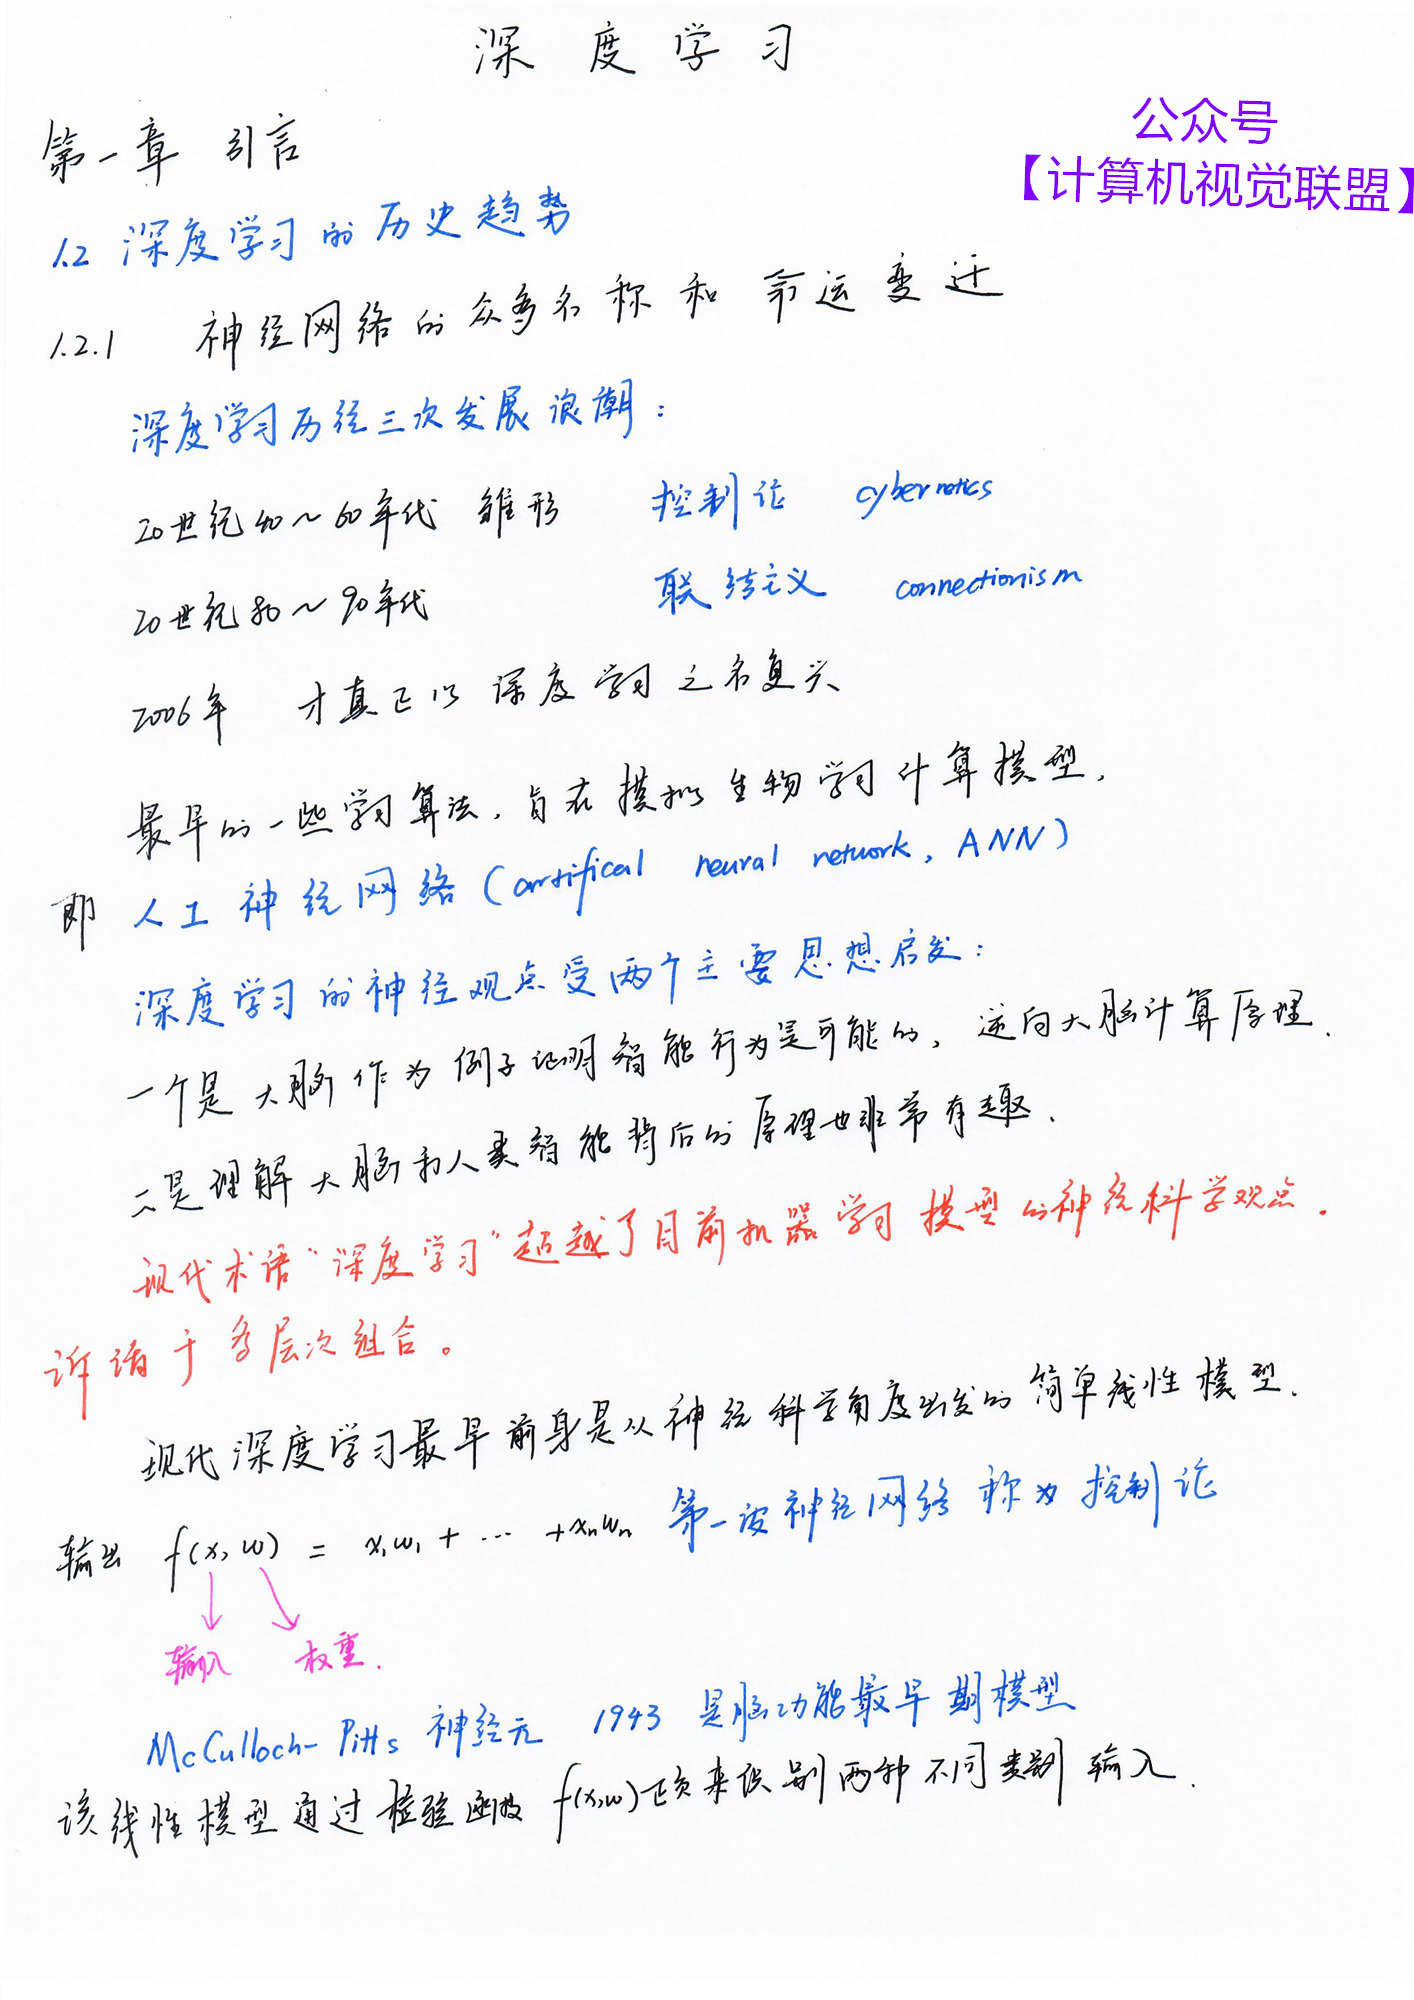 深度学习
公众号
【计算机视觉联盟】
第一章 引言
1.2 深度学习的历史趋势
1.2.1 神经网络的众多名称和命运变迁
深度学习历经三次发展浪潮：
20世纪40~60年代 雏形 控制论 cybernetics
20世纪80~90年代 联结主义 connectionism
2006年 才真正以深度学习之名复兴
最早的一些学习算法，旨在模拟生物学习计算模型，
即 人工神经网络（artifical neural network, ANN）
深度学习的神经观点受两个主要思想启发：
一个是大脑作为例子证明智能行为是可能的，逆向大脑计算原理．
二是理解大脑和人类智能背后的原理也非常有趣．
现代术语“深度学习”超越了目前机器学习模型的神经科学观点．
诉诸于多层次组合。
现代深度学习最早前身是从神经科学角度出发的简单线性模型．
输出 f(x, w) = x₁w₁ + ... + xₙwₙ 第一波神经网络称为控制论
输入 权重．
McCulloch-Pitts 神经元 1943 是脑功能最早期模型
该线性模型通过检验函数 f(x,w)正负来识别两种不同类别输入．